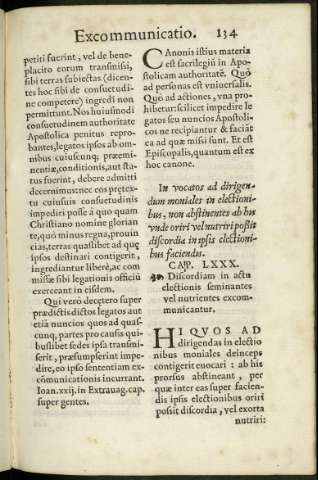 Excommunicatio. 134
petiti fuerint, vel de bene-
placito eorum transmissi,
sibi terras subiectas (dicen-
tes hoc sibi de consuetudi-
ne competere) ingredi non
permittunt. Nos huiusmodi
consuetudinem authoritate
Apostolica penitus repro-
bantes, legatos ipsos ab om-
nibus cuiuscunq; præemi-
nentiæ, conditionis, aut sta-
tus fuerint, debere admitti
decernimus: nec eos prętex-
tu cuiusuis consuetudinis
impediri posse à quo quam
Christiano nomine glorian
te, quò minus regna, prouin
cias, terras quaslibet ad quę
ipsos destinari contigerit,
ingrediantur liberè, ac com
missæ sibi legationis officiũ
exerceant in eisdem.
Qui verò decętero super
prædictis dictos legatos aut
etiã nuncios quos ad quas-
cunq; partes pro causis qui-
buslibet sedes ipsa transmi-
serit, præsumpserint impe-
dire, eo ipso sententiam ex-
cõmunicationis incurrant.
Ioan. xxij. in Extrauag. cap.
super gentes.
CAnonis istius materia
est sacrilegiũ in Apo-
stolicam authoritatẽ. Quò
ad personas est vniuersalis.
Quò ad actiones, vna pro-
hibetur: scilicet impedire le
gatos seu nuncios Apostoli-
cos ne recipiantur & faciãt
ea ad quæ missi sunt. Et est
Episcopalis, quantum est ex
hoc canone.
In vocatos ad dirigen-
dum moniales in electioni-
bus, non abstinentes ab his
vnde oriri vel nutriri possit
discordia in ipsis electioni-
bus faciendis.
CAP. LXXX.
Discordiam in actu
electionis seminantes
vel nutrientes excom-
municantur.
HI QVOS AD
dirigendas in electio
nibus moniales deinceps
contigerit euocari: ab his
prorsus abstineant, per
quæ inter eas super facien-
dis ipsis electionibus oriri
possit discordia, vel exorta
nutriri: